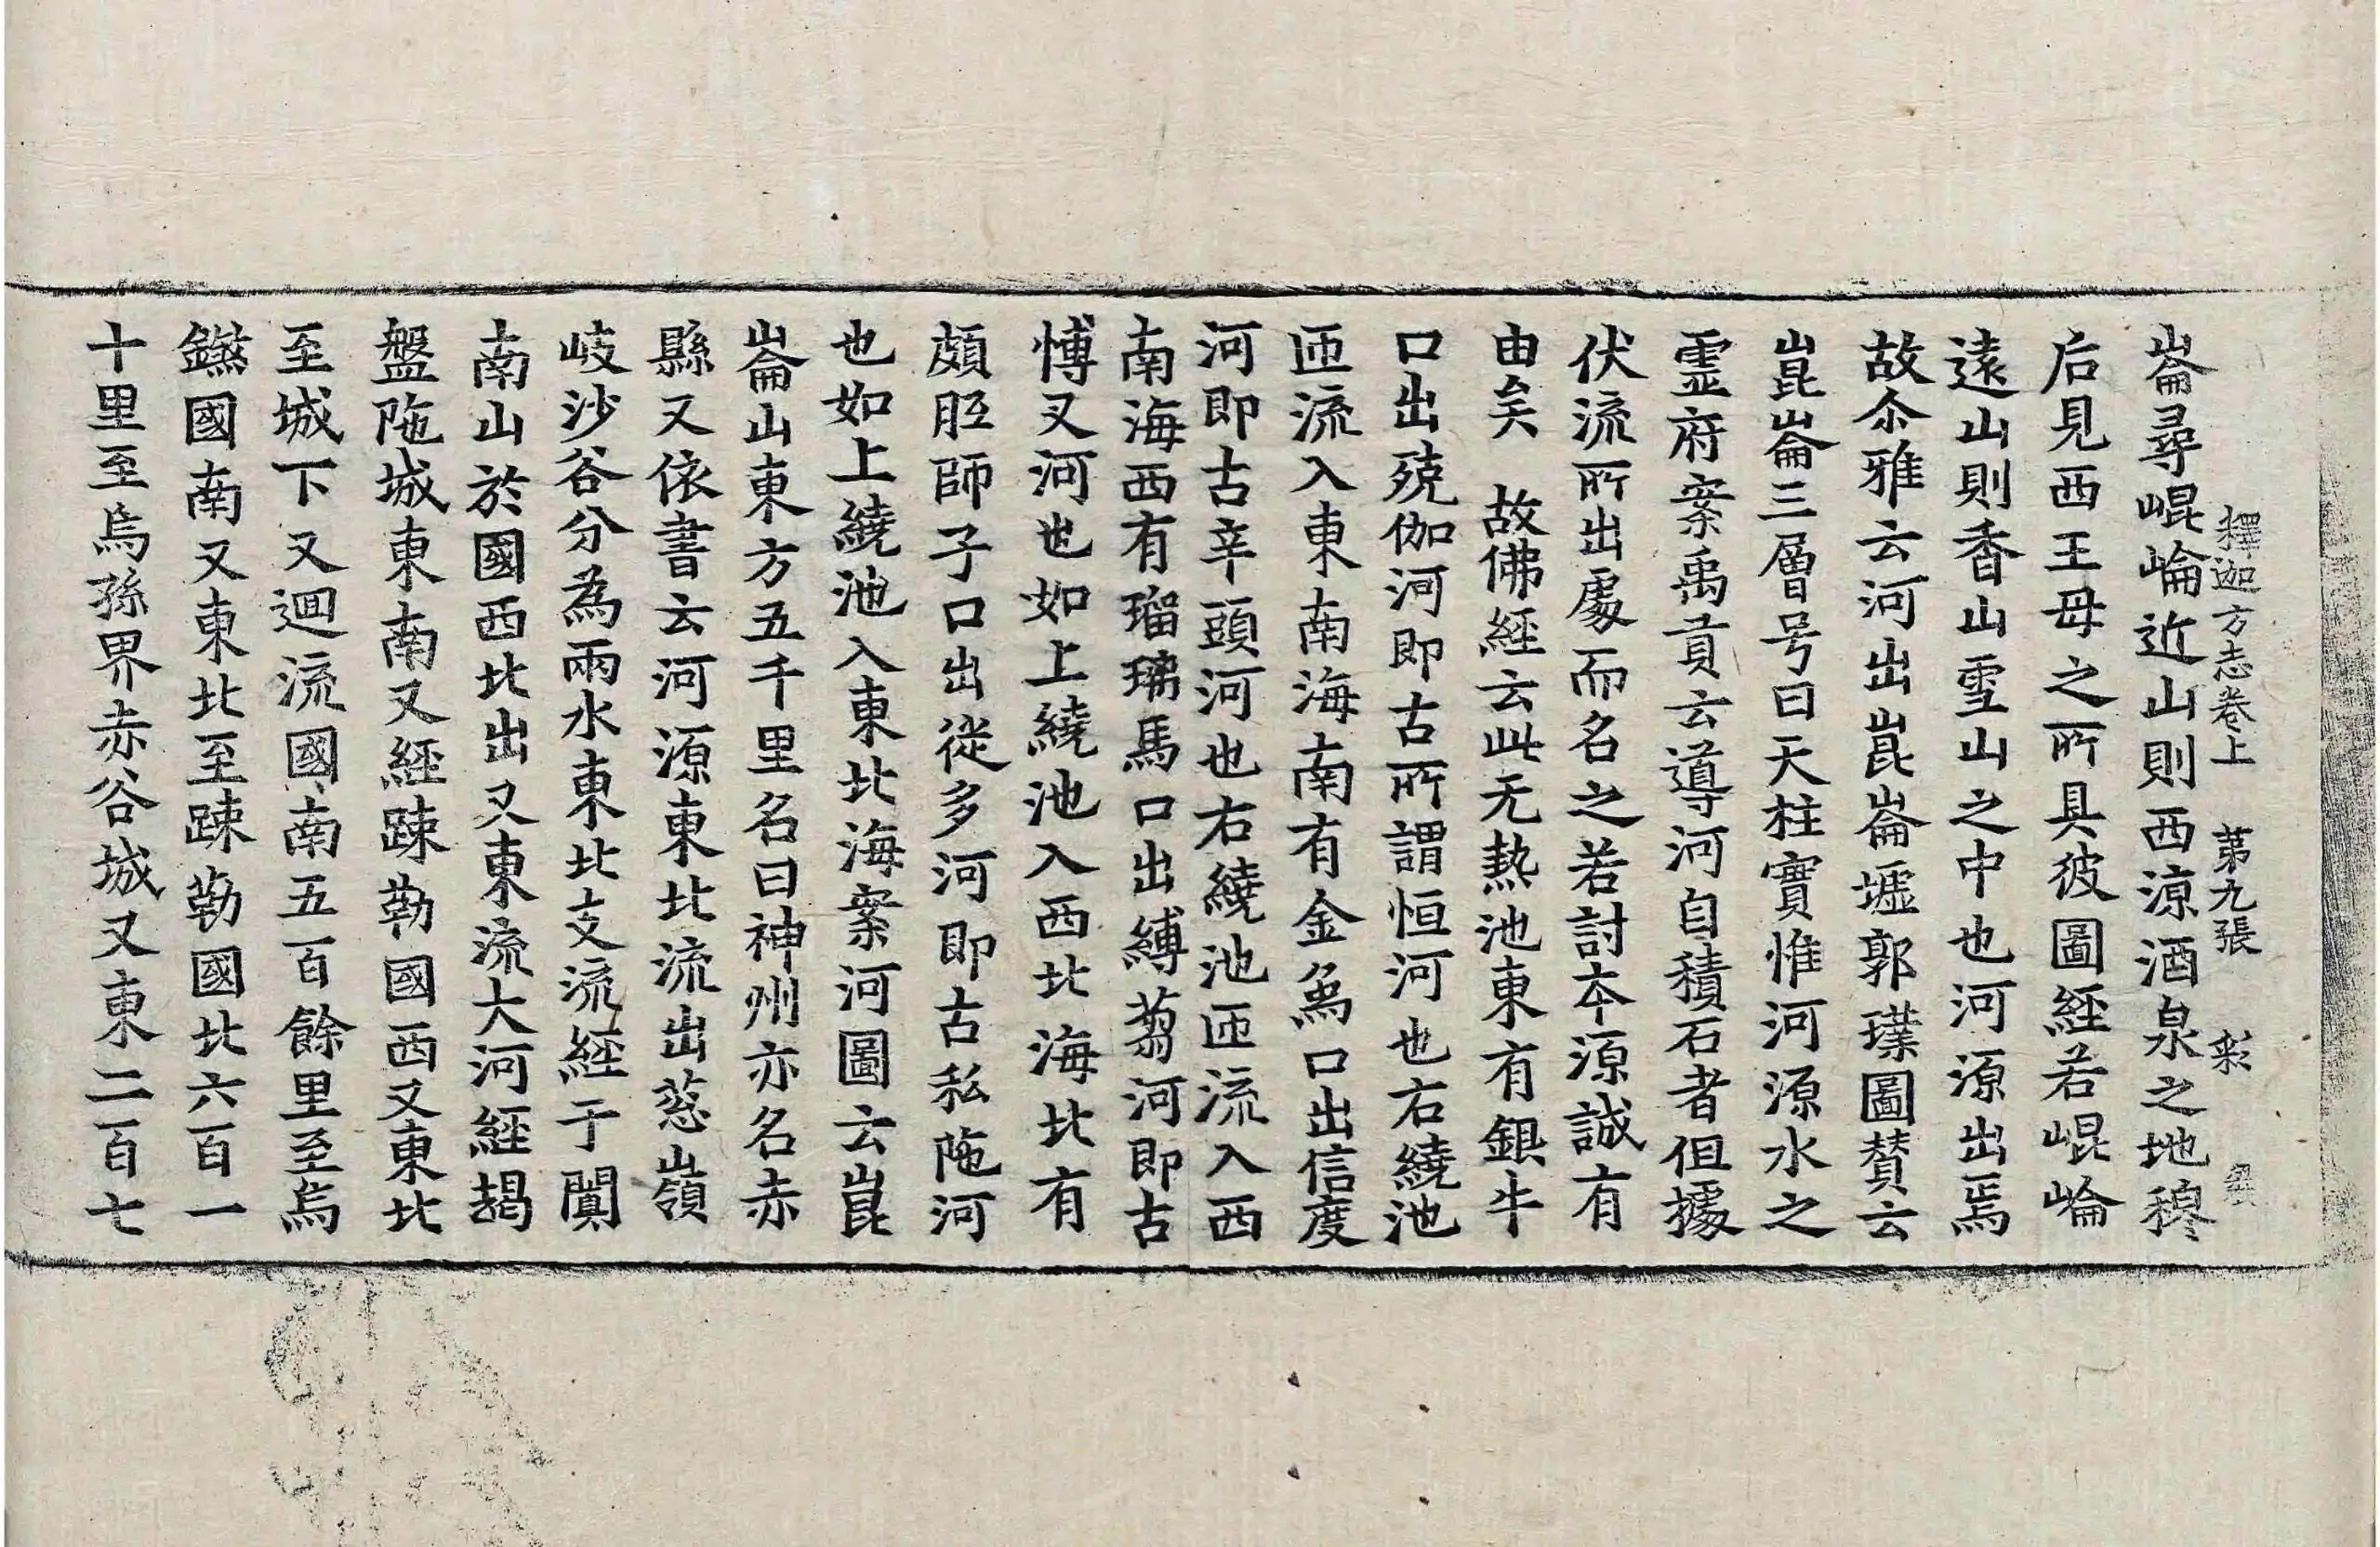 釋迦方志卷上 第九張 彩
崙尋崐崘近山則西涼酒泉之地穆
后見西王母之所具彼圖經若崐崘
遠山則香山雪山之中也河源出焉
故尒雅云河出崑崙墟郭璞圖賛云
崑崙三層号曰天柱實惟河源水之
霊府案禹貢云導河自積石者但據
伏流所出處而名之若討夲源誠有
由矣 故佛經云此无熱池東有銀牛
口出殑伽河即古所謂恒河也右繞池
匝流入東南海南有金烏口出信度
河即古辛頭河也右繞池匝流入西
南海西有瑠璃馬口出縛蒭河即古
愽叉河也如上繞池入西北海北有
頗胝師子口出徙多河即古私陁河
也如上繞池入東北海案河圖云崑
崙山東方五千里名曰神州亦名赤
縣又依書云河源東北流出葱嶺
岐沙谷分為兩水東北支流經于闐
南山於國西北出又東流大河經朅
盤陁城東南又經踈勒國西又東北
至城下又迴流國南五百餘里至烏
鎩國南又東北至踈勒國北六百一
十里至烏孫界赤谷城又東二百七